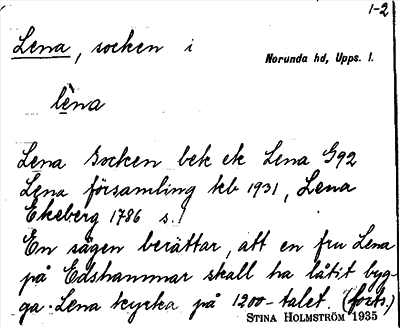 1-2
Lena, socken i
Norunda hd, Upps. l.
lèna
Lena socken bek ek Lena G92
Lena församling kb 1931, Lena
Ekeberg 1786 s.1
En sägen berättar, att en fru Lena
på Edshammar skall ha låtit byg-
ga Lena kyrka på 1200-talet. (forts.)
STINA HOLMSTRÖM 1935